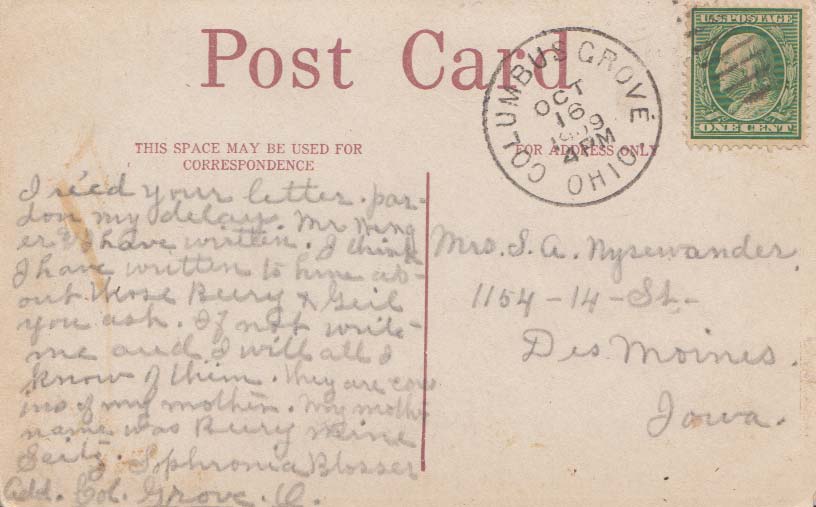 Post Card
THIS SPACE MAY BE USED FOR
CORRESPONDENCE
FOR ADDRESS ONLY
COLUMBUS GROVE, OHIO
OCT
16
1909
4 PM
U.S. POSTAGE
ONE CENT
I rec'd your letter. par-
don my delay. Mr Wing
er & I have written. I think
I have written to him ab-
out those Beery & Geil
you ask. If not write
me and I will all I
know of them. They are cou
ins of my mother. My mothe
name was Beery mine
Seitz. Sophronia Blosser
Add. Col. Grove. O.
Mrs. S. A. Nysewander.
1154-14-St.-
Des Moines.
Iowa.